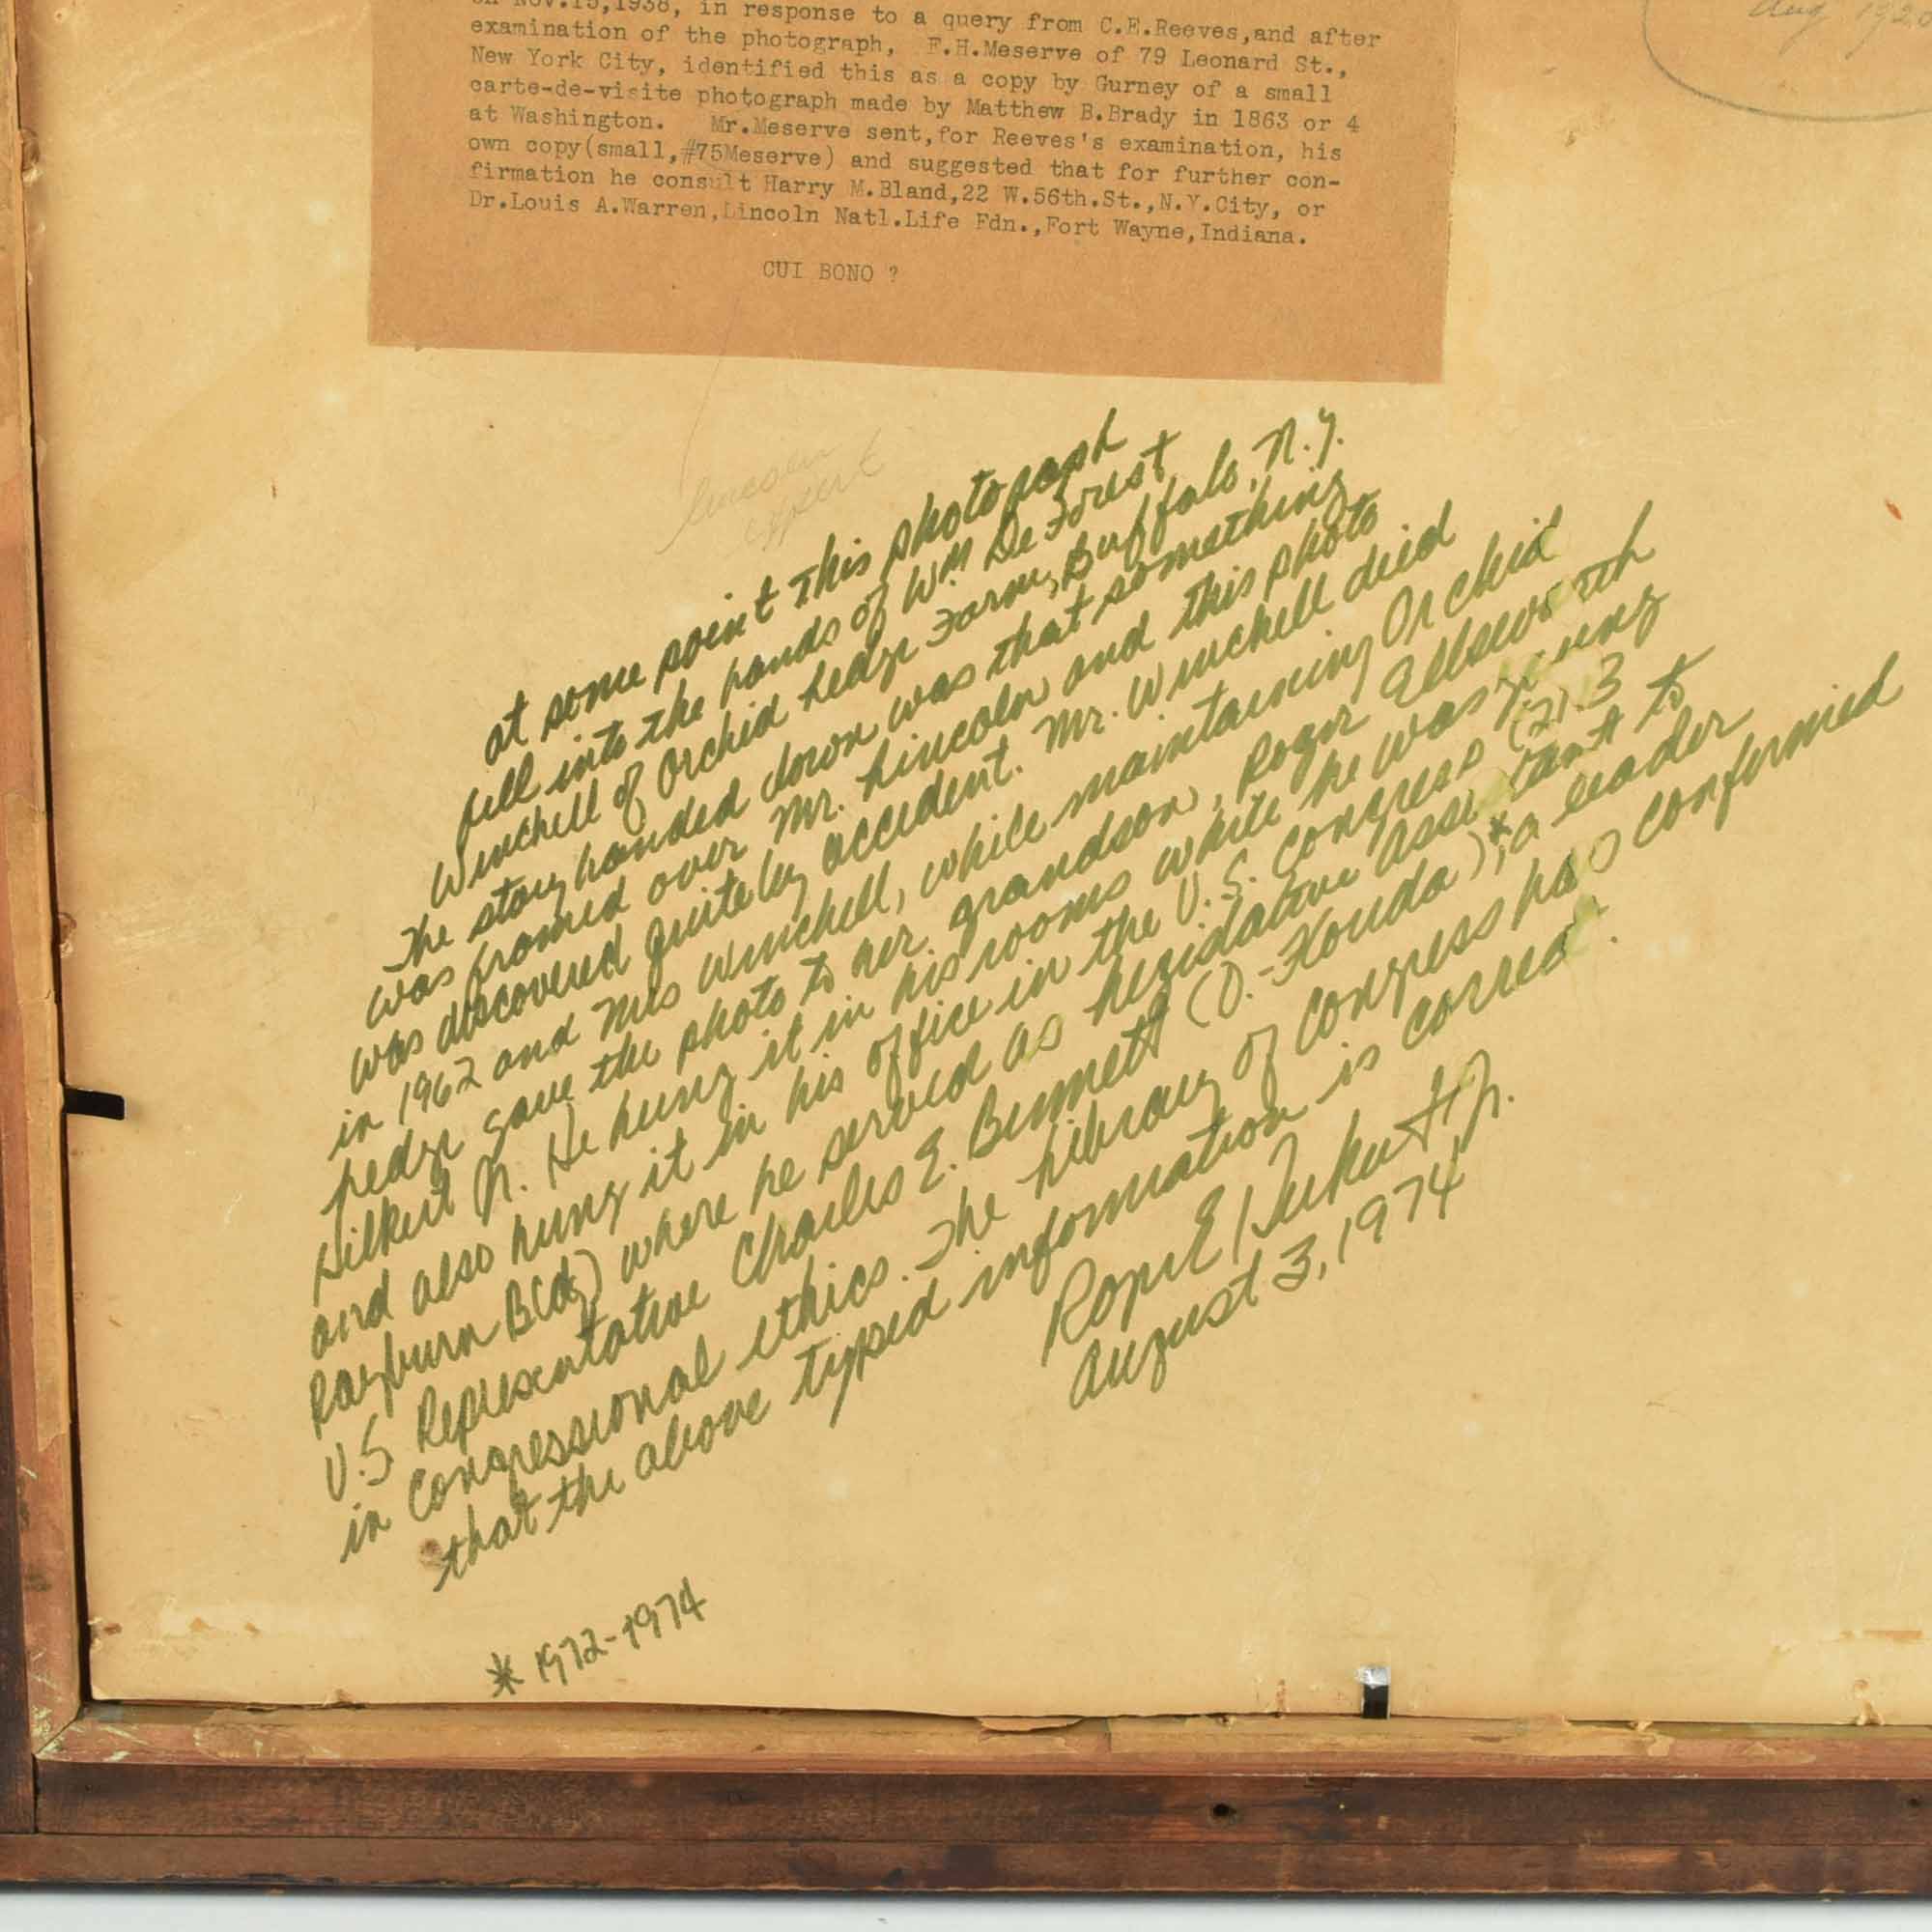 on Nov.15,1938, in response to a query from C.E.Reeves,and after
examination of the photograph, F.H.Meserve of 79 Leonard St.,
New York City, identified this as a copy by Gurney of a small
carte-de-visite photograph made by Matthew B.Brady in 1863 or 4
at Washington. Mr.Meserve sent,for Reeves's examination, his
own copy(small,#75Meserve) and suggested that for further con-
firmation he consult Harry M.Bland,22 W.56th.St.,N.Y.City, or
Dr.Louis A.Warren,Lincoln Natl.Life Fdn.,Fort Wayne,Indiana.
CUI BONO ?
Aug
Lincoln
expert
at some point this photograph
fell into the hands of Wm De Forest
Winchell of Orchid hedge Farm, Buffalo, N.Y.
The story handed down was that something
was framed over Mr. Lincoln and this photo
was discovered quite by accident. Mr. Winchell died
in 1962 and Mrs Winchell, while maintaining Orchid
hedge gave the photo to her grandson, Roger Ellsworth
He hung it in his rooms while he was young
and also hung it in his office in the U.S. Congress (2113
Rayburn Bldg) where he served as Legislative Assistant to
U.S Representative Charles E. Bennett (D.-Florida)*, a leader
in Congressional ethics. The Library of Congress has confirmed
that the above typed information is correct.
August 3, 1974
* 1972-1974